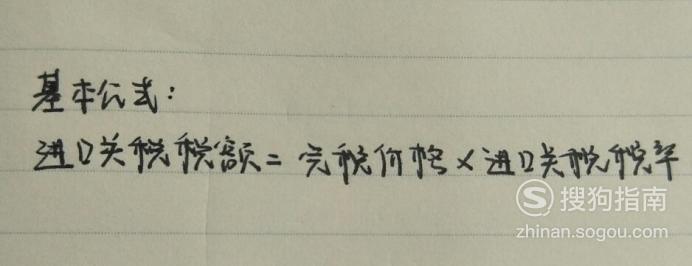 基本公式：
进口关税税额=完税价格×进口关税税率
搜狗指南
zhinan.sogou.com